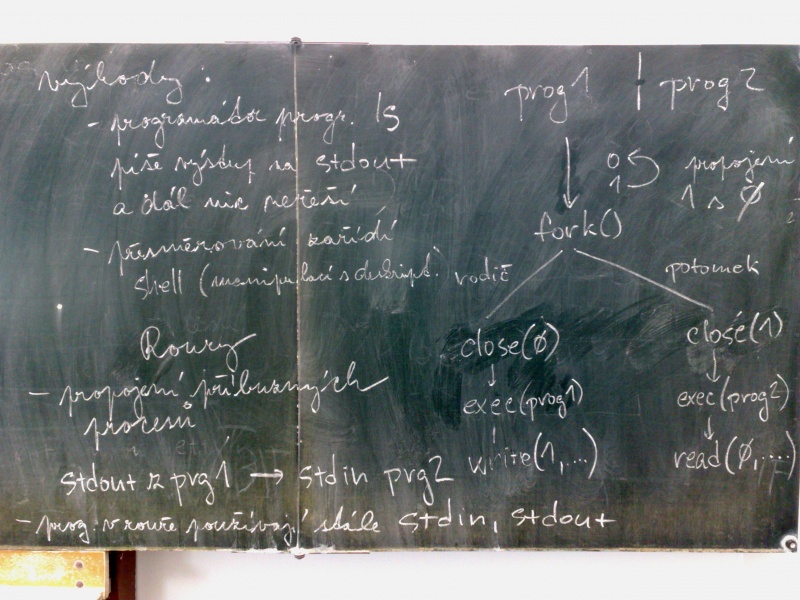 výhody :
- programátor progr. ls
píše výstup na stdout
a dál nic neřeší
- přesměrování zařídí
shell (manipulací s deskript.
Roury
- propojení příbuzných
procesů
stdout z prg1 → stdin prg2
- prog. v rouře používají stále stdin, stdout
prog1 | prog2
0
1
propojení
1 s 0
fork()
rodič
potomek
close(0)
close(1)
exec(prog1)
exec(prog2)
write(1,...)
read(0,....)